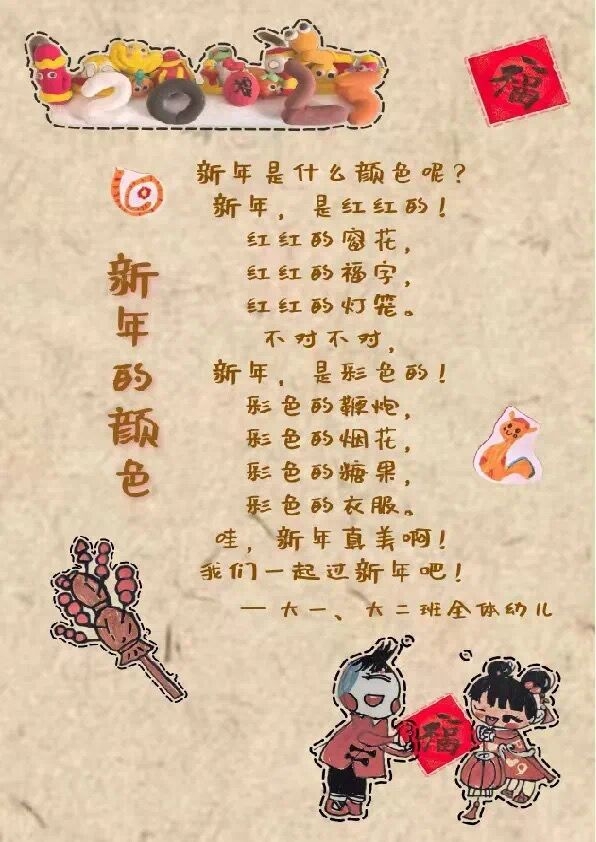 2025
福
新年的颜色
新年是什么颜色呢?
新年，是红红的!
红红的窗花，
红红的福字，
红红的灯笼。
不对不对，
新年，是彩色的!
彩色的鞭炮，
彩色的烟花，
彩色的糖果，
彩色的衣服。
哇，新年真美啊!
我们一起过新年吧!
— 大一、大二班全体幼儿
福